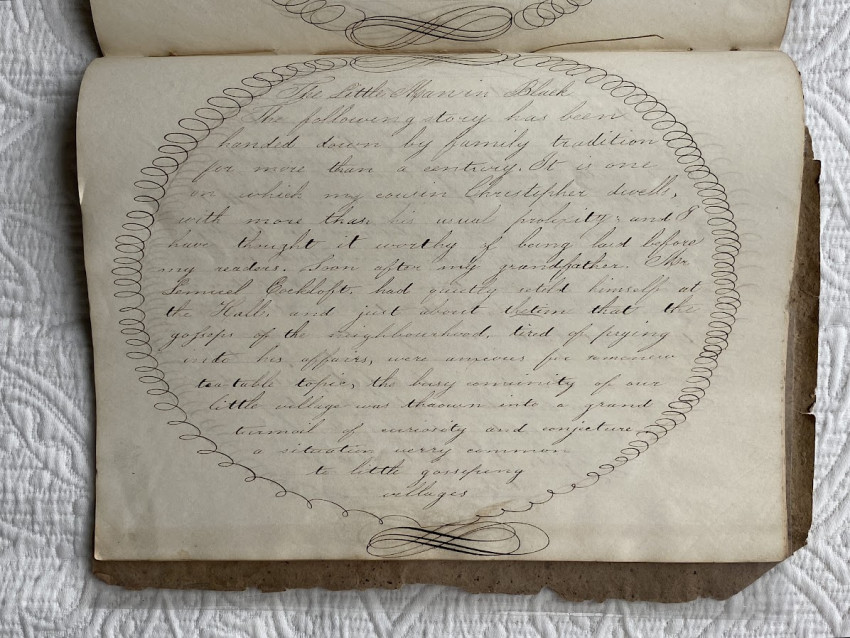 The Little Man in Black
The following story has been
handed down by family tradition
for more than a century. It is one
on which my cousin Christopher dwells,
with more than his usual prolixity; and I
have thought it worthy of being laid before
my readers. Soon after my grandfather. Mr
Lemuel Cockloft. had quietly setled himself at
the Hall, and just about the time that the
gossips of the neighbourhood, tired of prying
into his affairs, were anxious for some new
tea table topic, the busy community of our
little village was thrown into a grand
turmoil of curiosity and conjecture,
a situation verry common
to little gossiping
villages